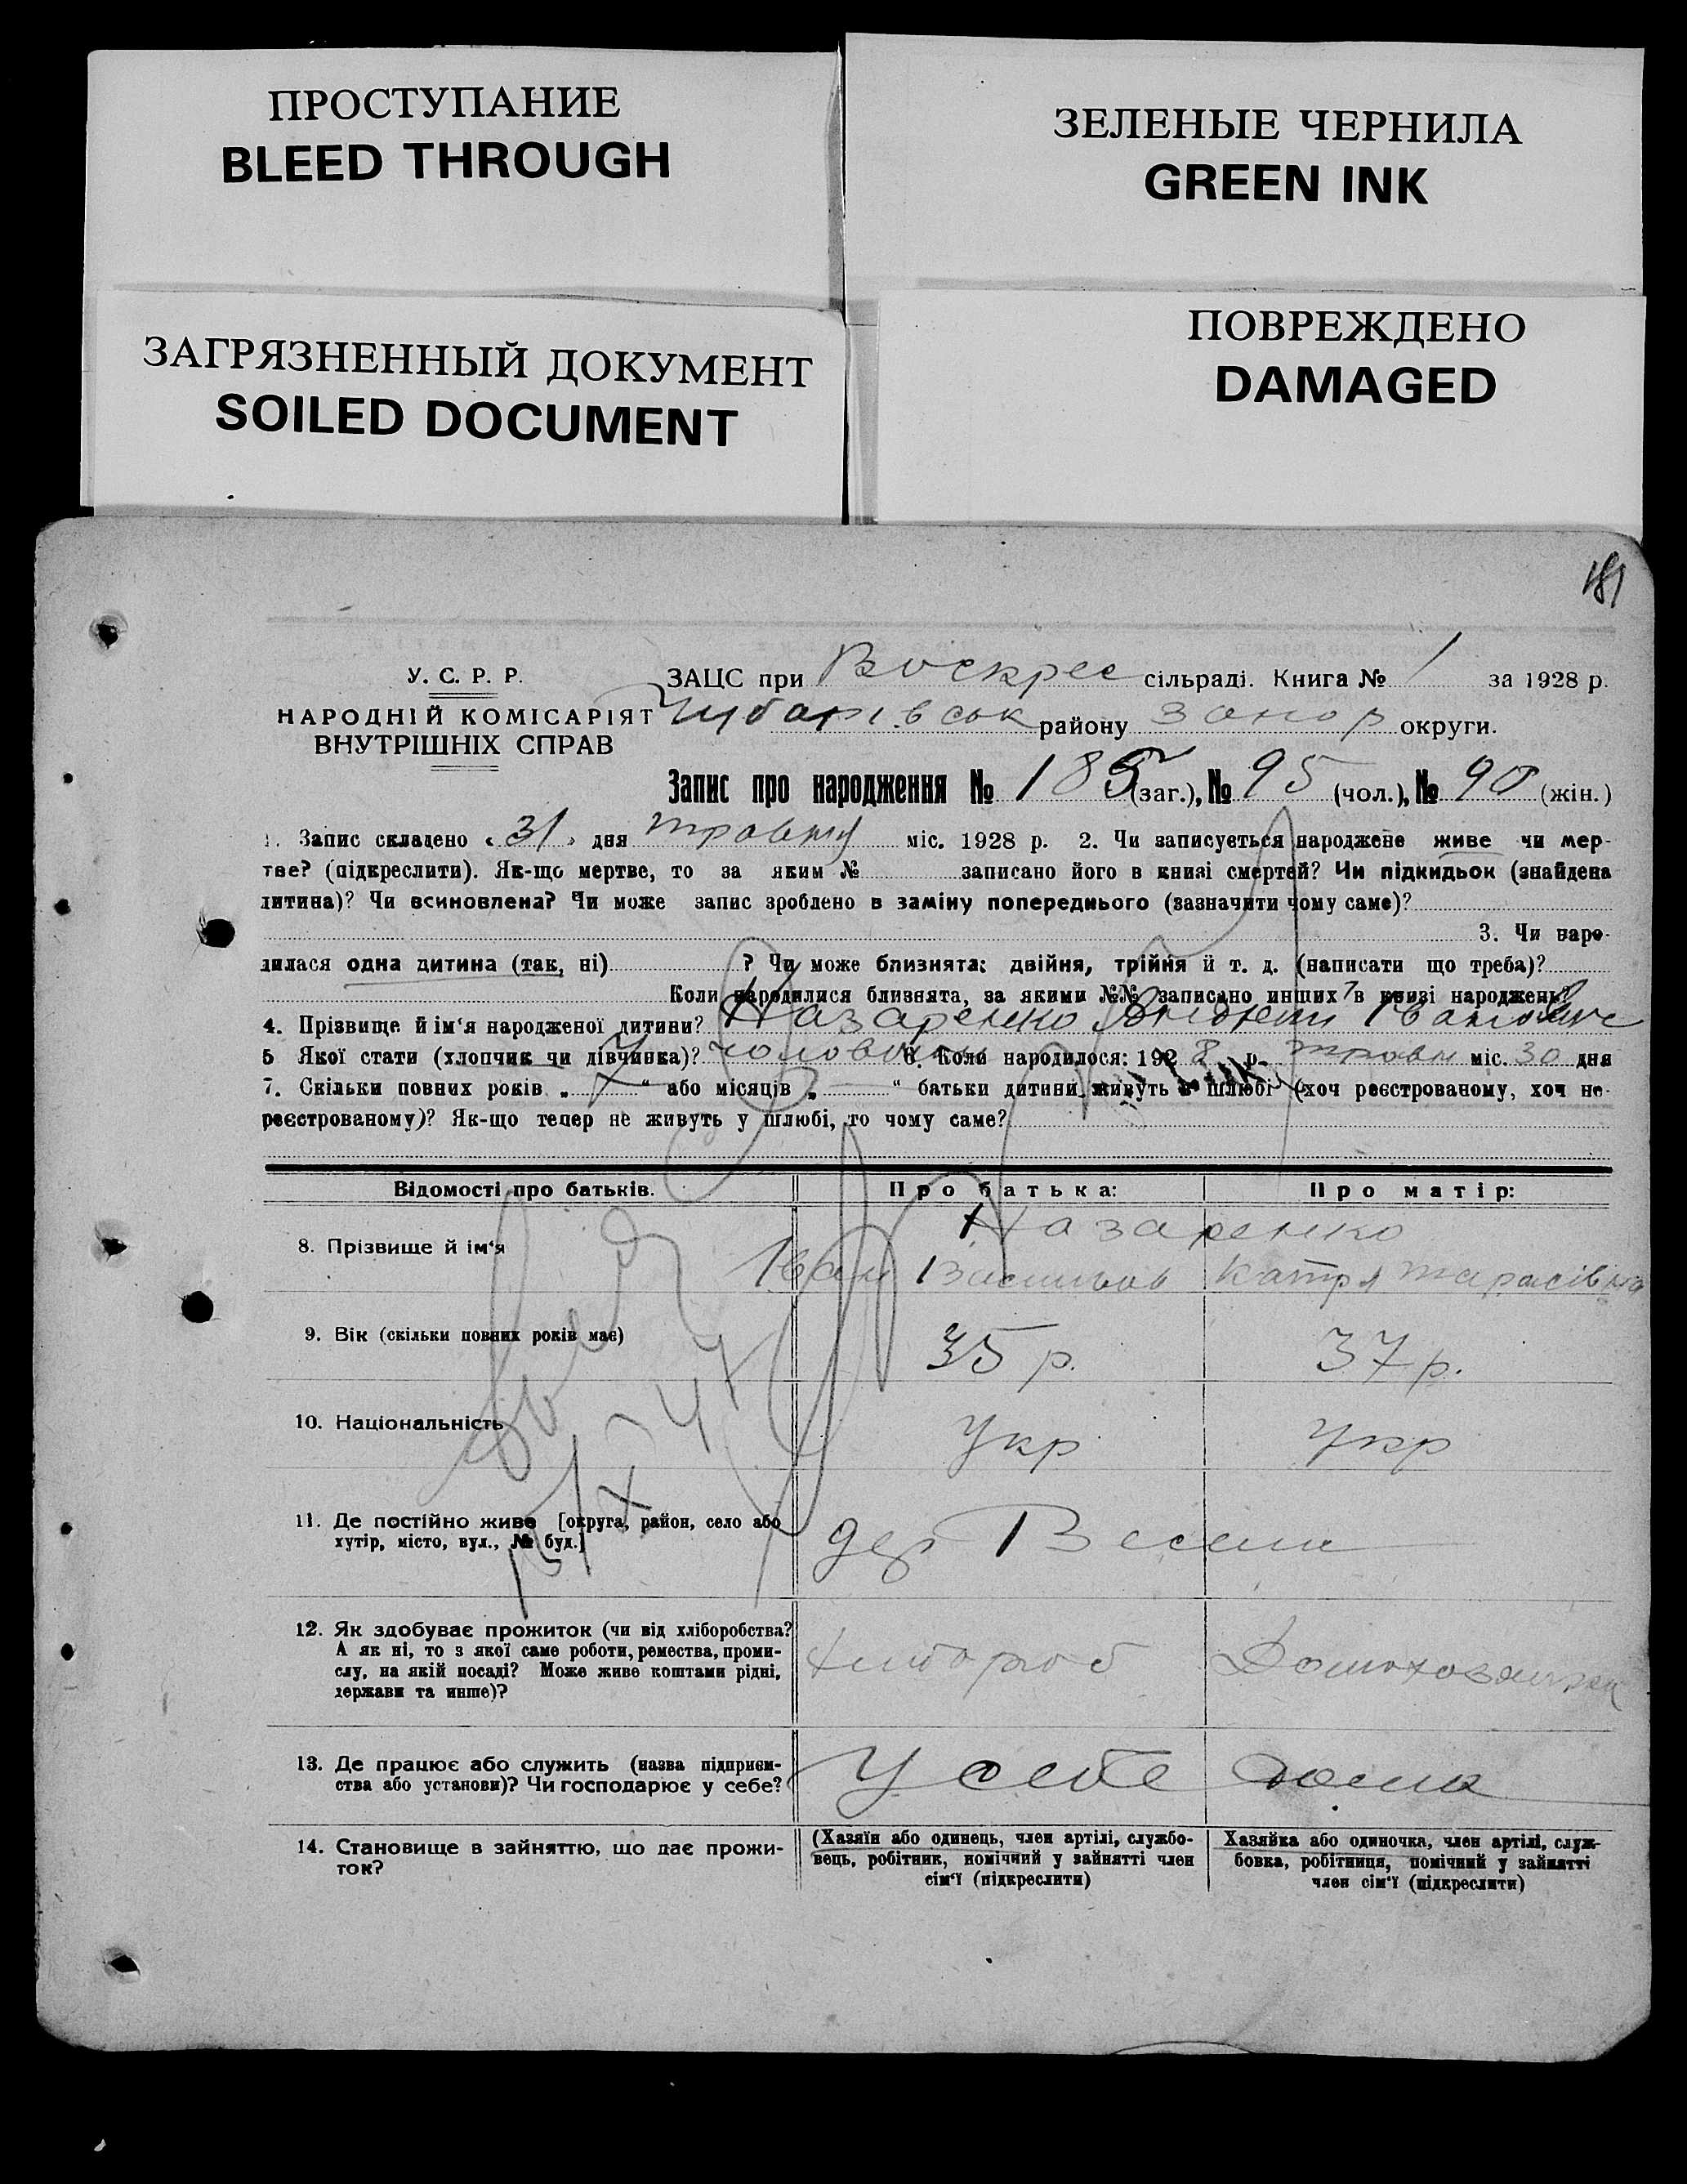 ПРОСТУПАНИЕ
BLEED THROUGH
ЗЕЛЕНЫЕ ЧЕРНИЛА
GREEN INK
ЗАГРЯЗНЕННЫЙ ДОКУМЕНТ
SOILED DOCUMENT
ПОВРЕЖДЕНО
DAMAGED
181
У. С. Р. Р.
НАРОДНІЙ КОМІСАРІЯТ
ВНУТРІШНІХ СПРАВ
ЗАЦС при Воскрес сільраді. Книга № 1 за 1928 р.
Чубарівськ району Запор округи.
Запис про народження № 185 (заг.), № 95 (чол.), № 90 (жін.)
1. Запис складено „31" дня травня міс. 1928 р. 2. Чи записується народжене живе чи мер-
тве? (підкреслити). Як-що мертве, то за яким № записано його в книзі смертей? Чи підкидьок (знайдена
дитина)? Чи всиновлена? Чи може запис зроблено в заміну попереднього (зазначити чому саме)?
3. Чи наро-
дилася одна дитина (так, ні) ? Чи може близнята: двійня, трійня й т. д. (написати що треба)?
Коли народилися близнята, за якими №№ записано инших в книзі народжень?
4. Прізвище й ім‘я народженої дитини? Назаренко Іванович
5 Якої стати (хлопчик чи дівчинка)? чоловіч 6. Коли народилося: 1928 р. травн міс. 30 дня
7. Скільки повних років „ “ або місяців „ — “ батьки дитини живуть в шлюбі (хоч реєстрованому, хоч не-
реєстрованому)? Як-що тепер не живуть у шлюбі, то чому саме?
Відомості про батьків. Про батька: Про матір:
8. Прізвище й ім‘я Назаренко
Іван Васильов Катря Тарасівна
9. Вік (скільки повних років має) 35 р. 37 р.
10. Національність Укр Укр
11. Де постійно живе [округа, район, село або
хутір, місто, вул., № буд.]
дер Весели
12. Як здобуває прожиток (чи від хліборобства?
А як ні, то з якої саме роботи, ремества, проми-
слу, на якій посаді? Може живе коштами рідні,
держави та инше)?
Хлібороб
13. Де працює або служить (назва підприєм-
ства або установи)? Чи господарює у себе?
У себе дома
14. Становище в зайняттю, що дає прожи-
ток?
(Хазяїн або одинець, член артілі, службо-
вець, робітник, помічний у зайнятті член
сім‘ї (підкреслити)
Хазяйка або одиночка, член артілі, служ-
бовка, робітниця, помічний у зайнятті
член сім‘ї (підкреслити)